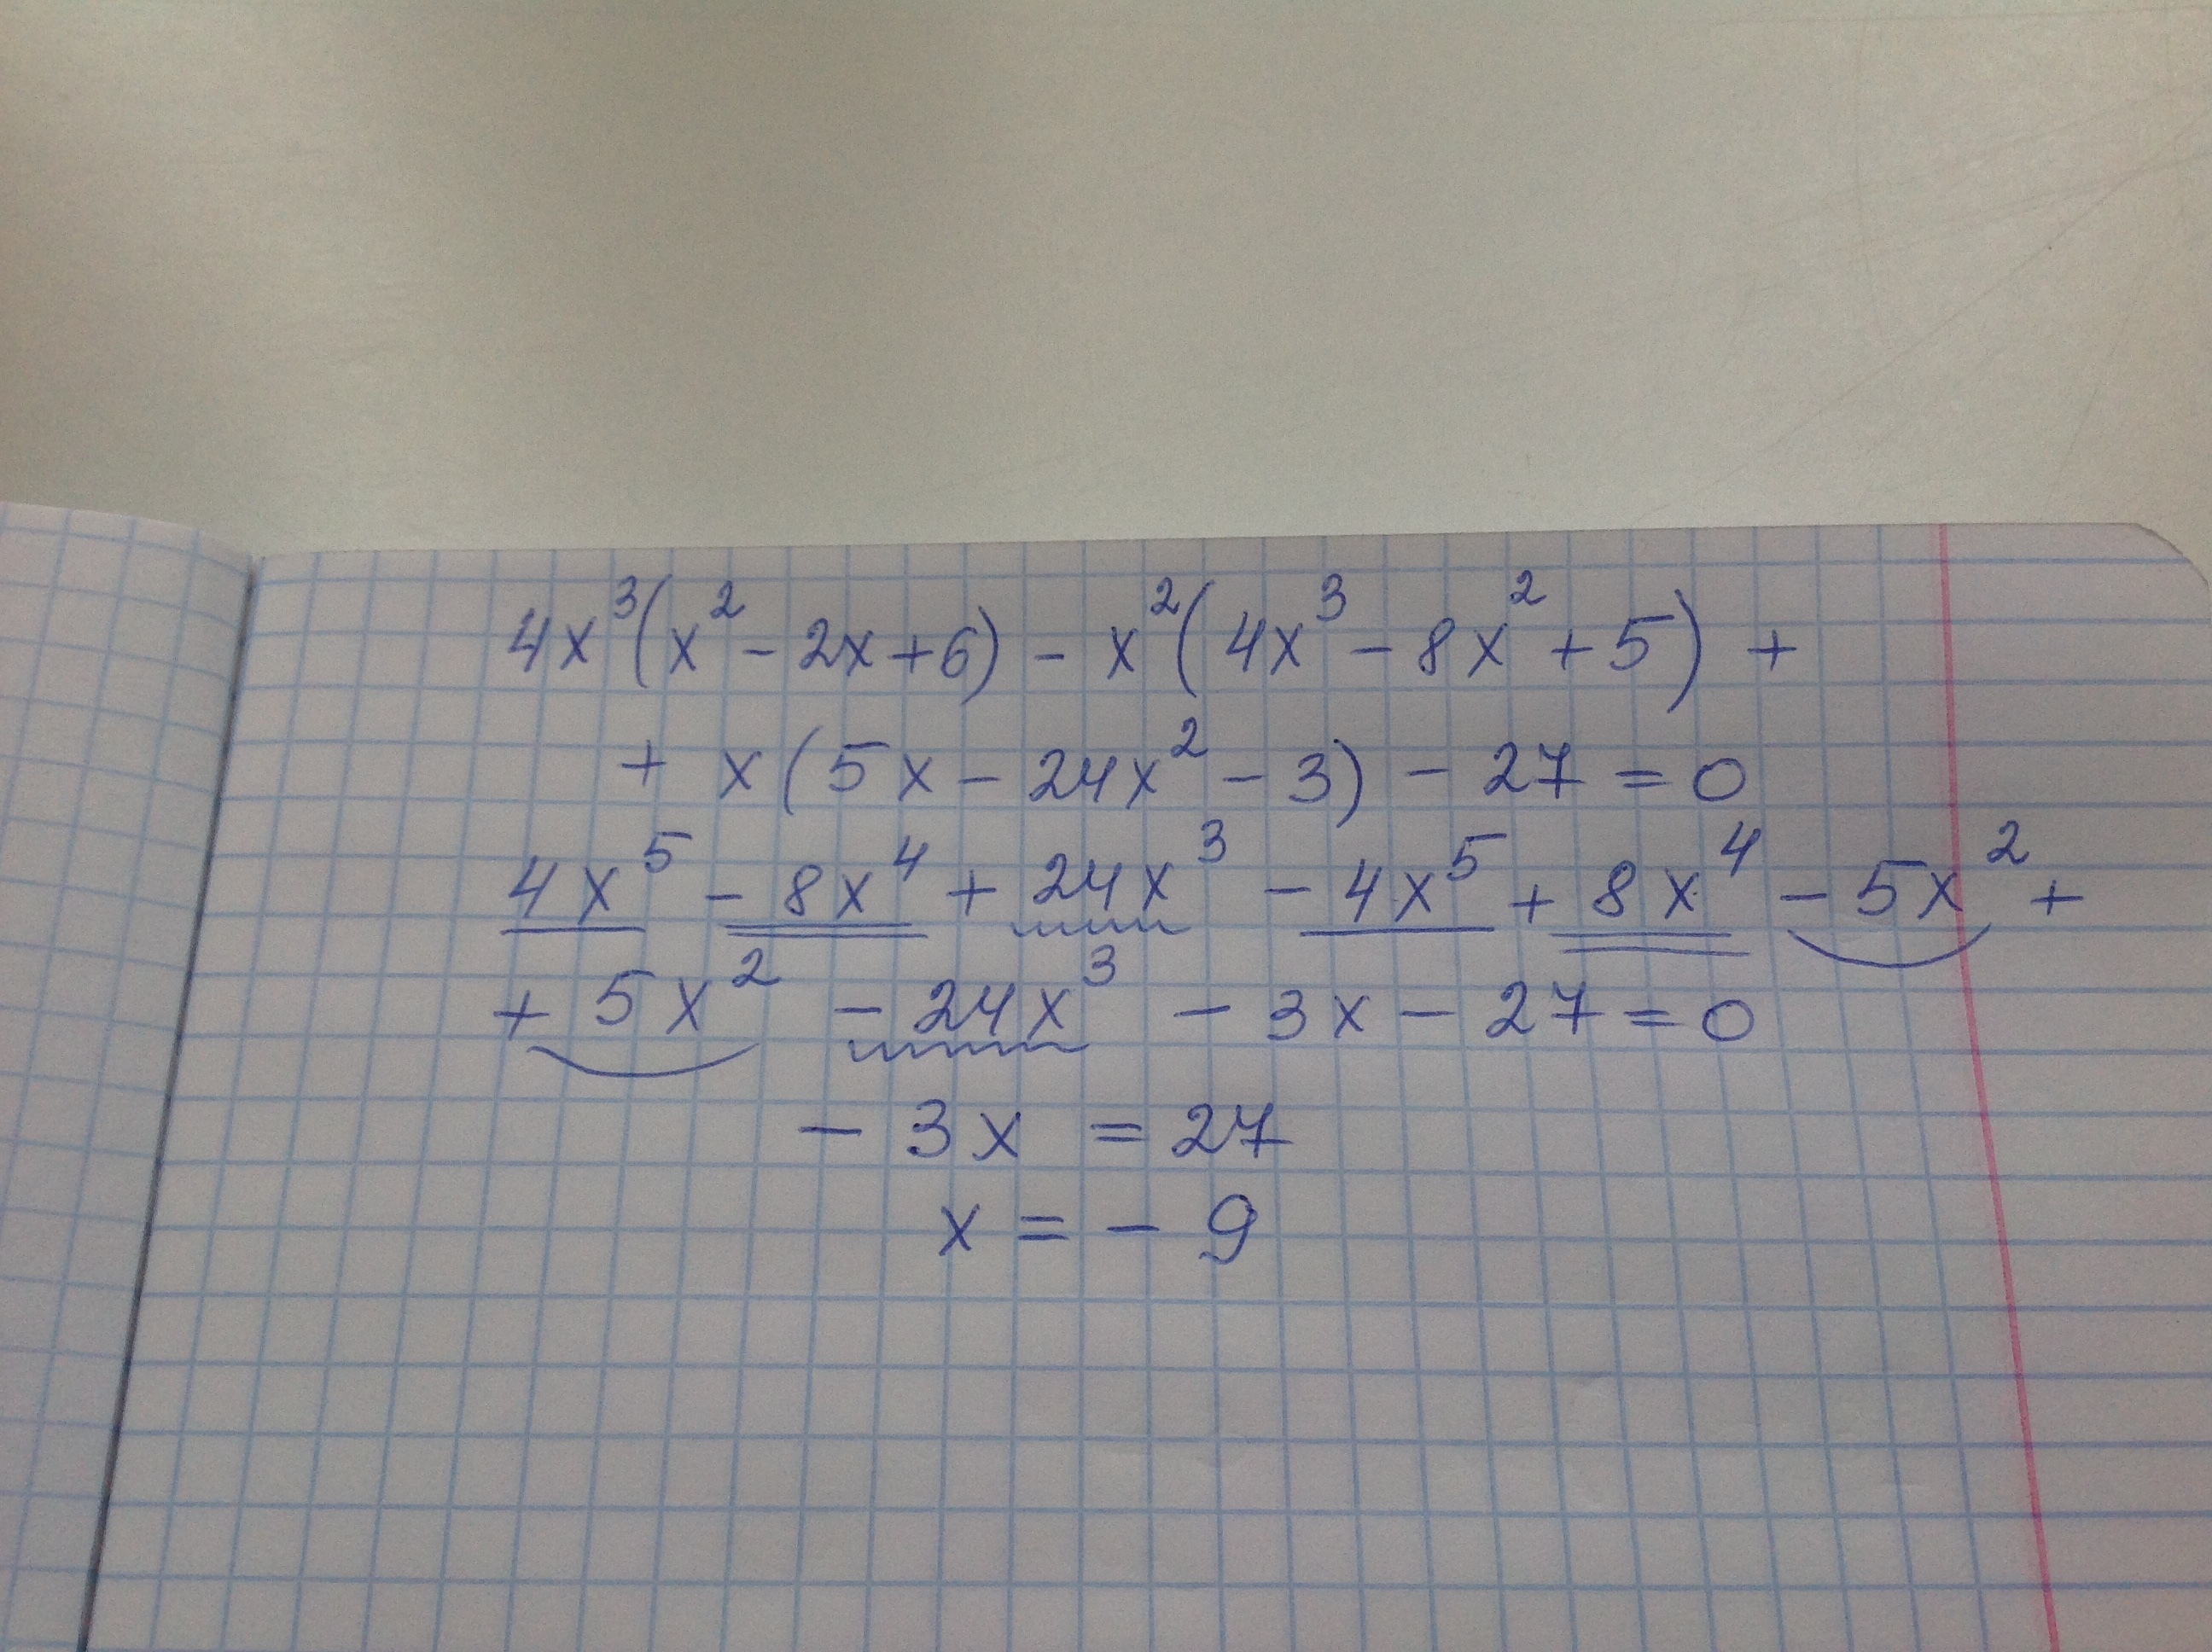 4x³(x² - 2x + 6) - x²(4x³ - 8x² + 5) +
+ x(5x - 24x² - 3) - 27 = 0
4x⁵ - 8x⁴ + 24x³ - 4x⁵ + 8x⁴ - 5x² +
+ 5x² - 24x³ - 3x - 27 = 0
- 3x = 27
x = - 9